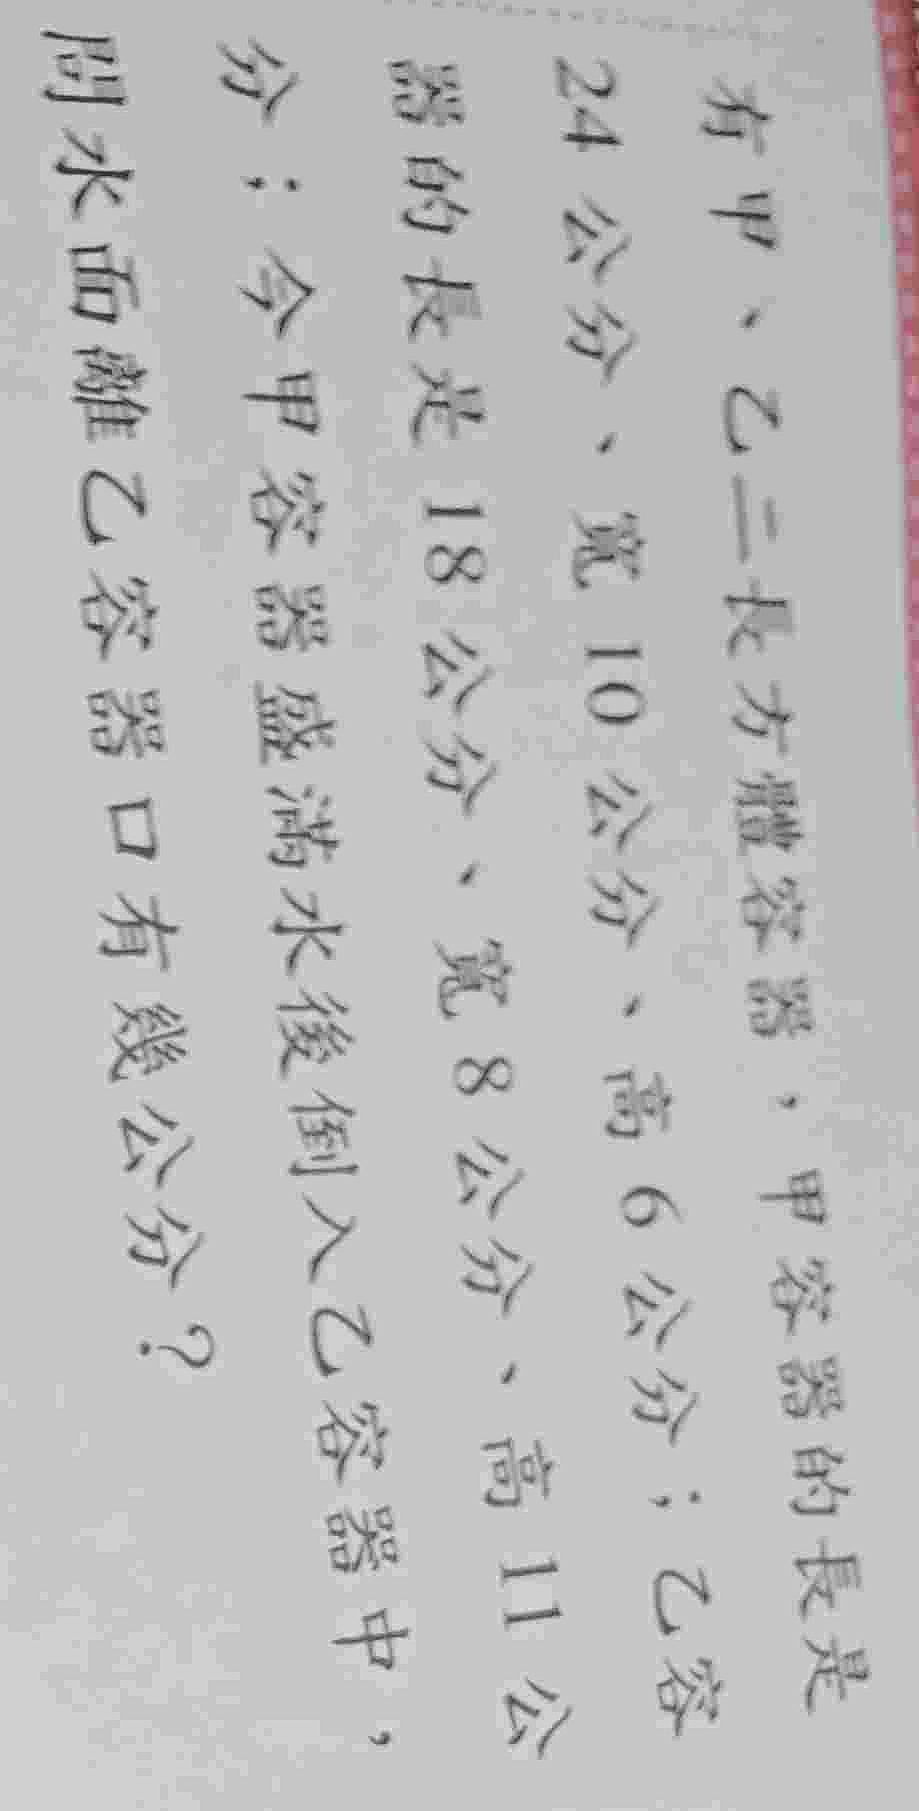 有甲、乙二長方體容器，甲容器的長是
24公分、寬10公分、高6公分；乙容
器的長是18公分、寬8公分、高11公
分；今甲容器盛滿水後倒入乙容器中，
問水面離乙容器口有幾公分？